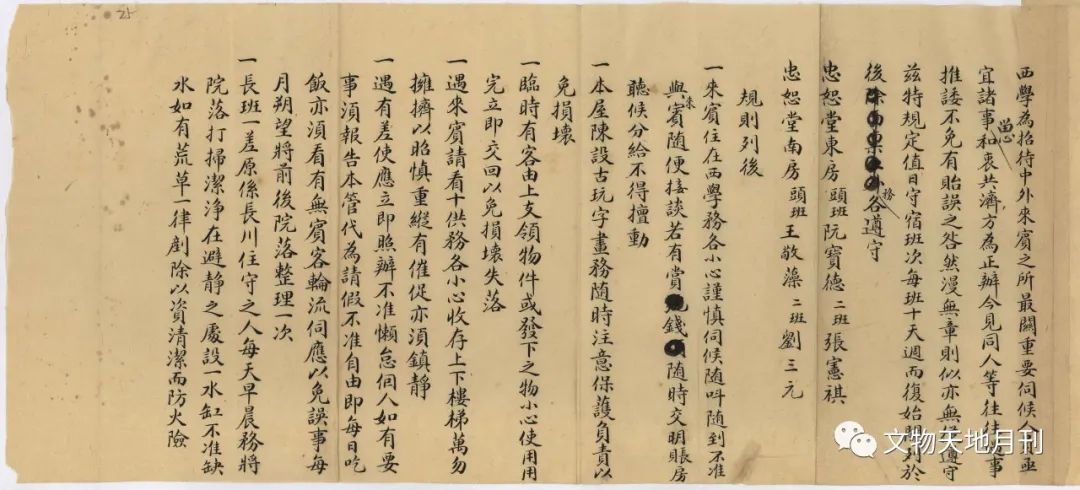 西學為招待中外來賓之所最關重要伺候人亟
宜諸事留心和衷共濟方為正辦今見同人等往往事
推諉不免有貽誤之咎然漫無章則似亦無遵守
茲特規定值日守宿班次每班十天週而復始列於
後各務遵守
忠恕堂東房 頭班阮寶德 二班張憲祺
忠恕堂南房 頭班王敬藻 二班劉三元
規則列後
一來賓住在西學務各小心謹慎伺候隨叫隨到不准
與來賓隨便接談若有賞錢隨時交明賬房
聽候分給不得擅動
一本屋陳設古玩字畫務隨時注意保護負責以
免損壞
一臨時有客由上支領物件或發下之物小心使用用
完立即交回以免損壞失落
一遇來賓請看十供務各小心收存上下樓梯萬勿
擁擠以昭慎重縱有催促亦須鎮靜
一遇有差使應立即照辦不准懶怠伺人如有要
事須報告本管代為請假不准自由即每日吃
飯亦須看有無賓客輪流伺應以免誤事每
月朔望將前後院落整理一次
一長班一差原係長川住守之人每天早晨務將
院落打掃潔淨在避靜之處設一水缸不准缺
水如有荒草一律剷除以資清潔而防火險
文物天地月刊